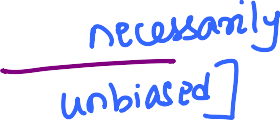 necessarily
unbiased]